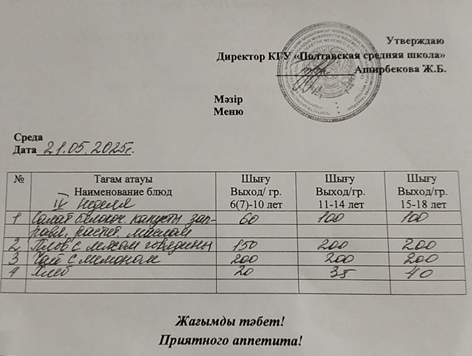 Утверждаю
Директор КГУ «Полтавская средняя школа»
Аширбекова Ж.Б.
Мәзір
Меню
Среда
Дата 21.05.2025г.
№ Тағам атауы Шығу Шығу Шығу
Наименование блюд Выход/ гр. Выход/ гр. Выход/ гр.
IV неделя 6(7)-10 лет 11-14 лет 15-18 лет
1 Салат капусты зап- 60 100 100
равл. маслом
2 Плов с мясом говядины 150 200 200
3 Чай с лимоном 200 200 200
4 Хлеб 20 35 40
Жағымды тәбет!
Приятного аппетита!